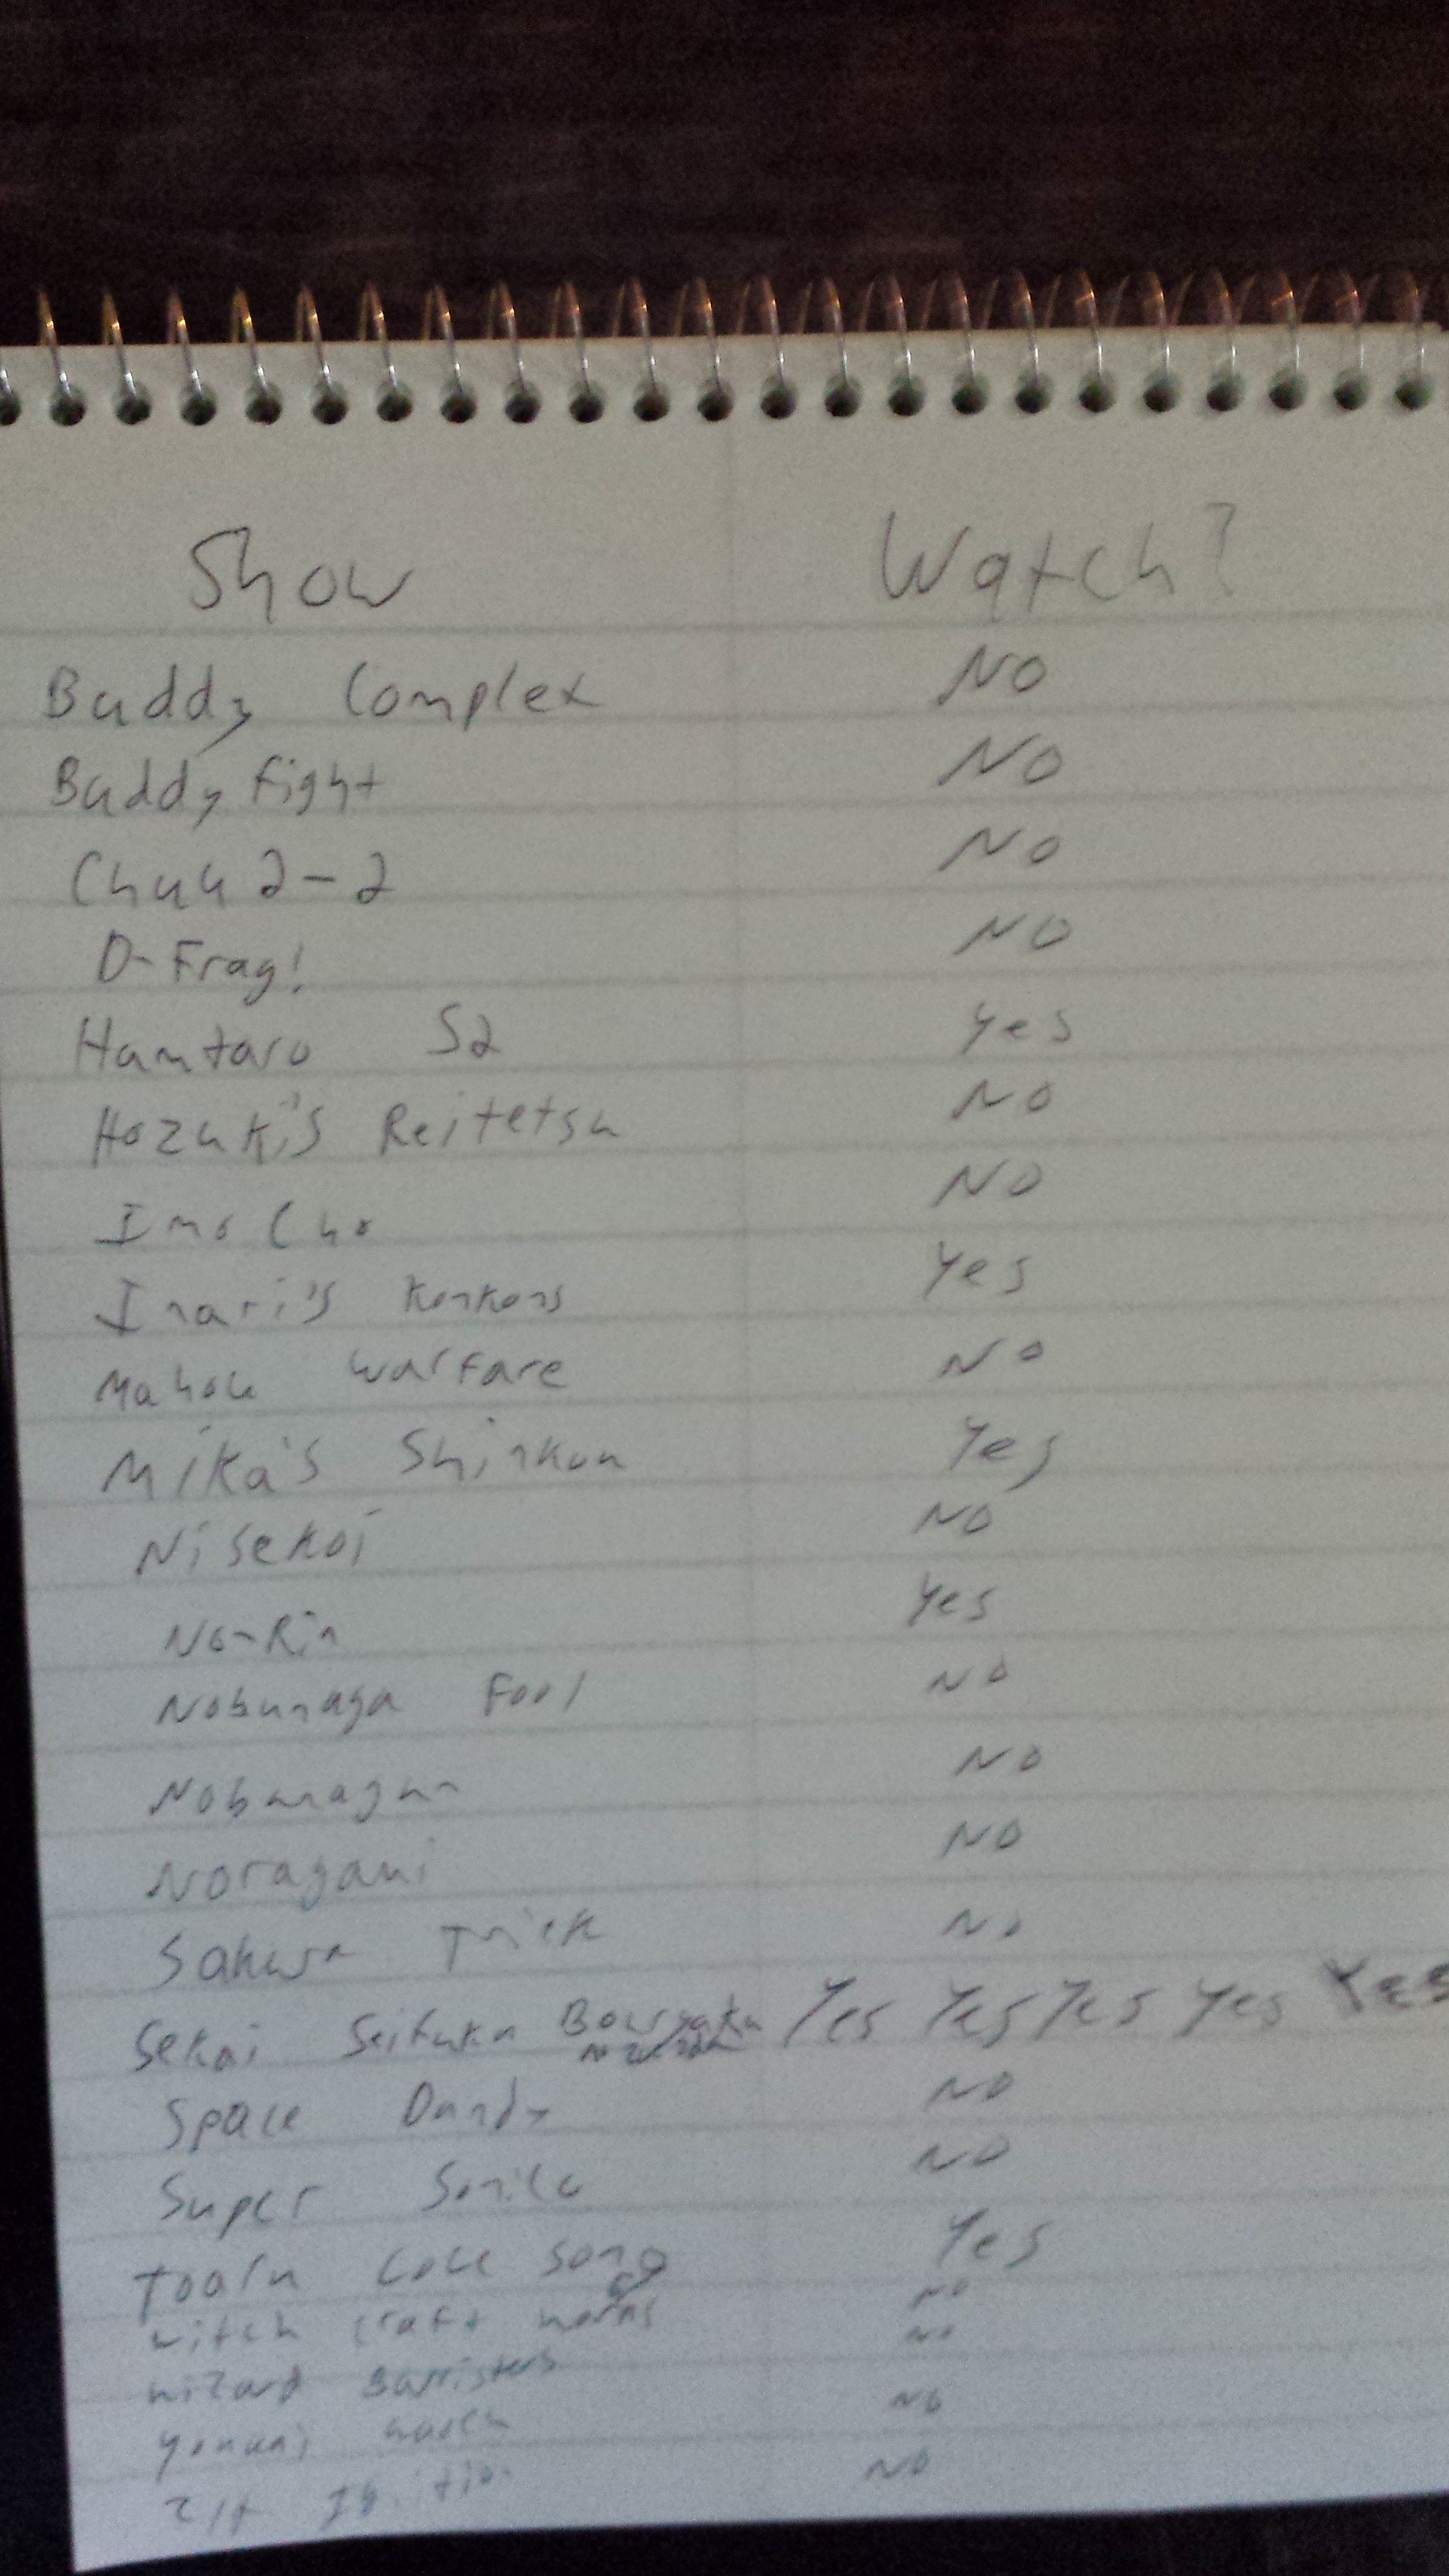 Show Watch?
Buddy Complex NO
Buddy Fight NO
Chuu2-2 NO
D-Frag! NO
Hamtaro S2 Yes
Hozuki's Reitetsu NO
Imo Cho NO
Inari's Konkons Yes
Mahou Warfare No
Mika's Shinkon Yes
Nisekoi NO
No-Rin Yes
Nobunaga Fool No
Nobunagun NO
Noragami NO
Sakura Trick No
Sekai Seifuku Yes Yes Yes Yes Yes
Space Dandy NO
Super Sonico NO
Tooku Song Yes
witch craft works NO
wizard Barristers No
Youkai watch NO
Ignition NO